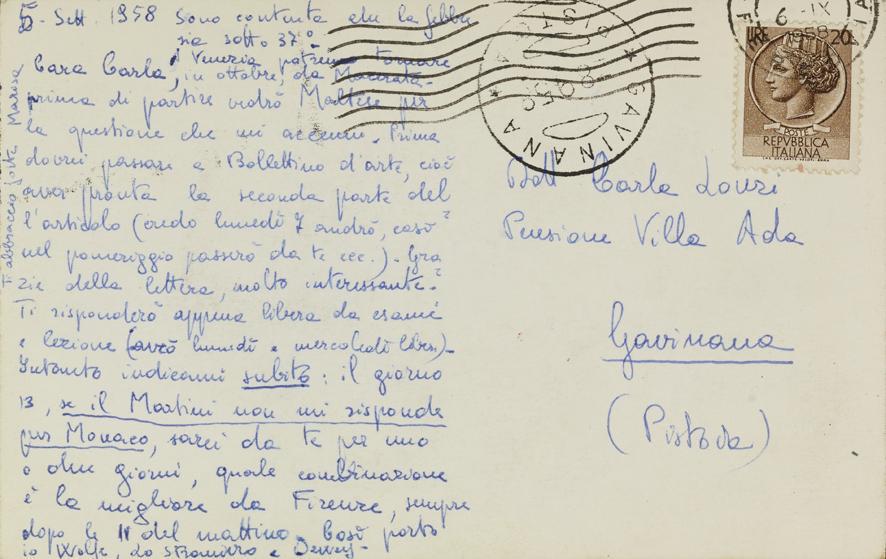 5 - Sett 1958 Sono contenta che la febbre
sia sotto 37°.
Cara Carla, a Venezia potremo tornare
in ottobre, da Macerata.
prima di partire vedrò Maltese per
la questione che mi accenni. Prima
dovrei passare a Bollettino d'arte, cioè
aver pronta la seconda parte del
l'articolo (credo lunedì 7 andrò, così
nel pomeriggio passerò da te ecc.). Gra
zie della lettera, molto interessante.
Ti risponderò appena libera da esame
e lezione (avrò lunedì e mercoledì liberi)-
Intanto indicami subito: il giorno
13, se il Martini non mi risponde
per Monaco, sarei da te per uno
o due giorni, quale combinazione
è la migliore da Firenze, sempre
dopo le 11 del mattino. Così porto
io Wolfe, do e Dewey-
Ti abbraccio forte Marisa
GAVINANA
6 - IX
1958
LIRE 20
POSTE
REPVBBLICA
ITALIANA
Dott Carla Lonzi
Pensione Villa Ada
Gavinana
(Pistoia)